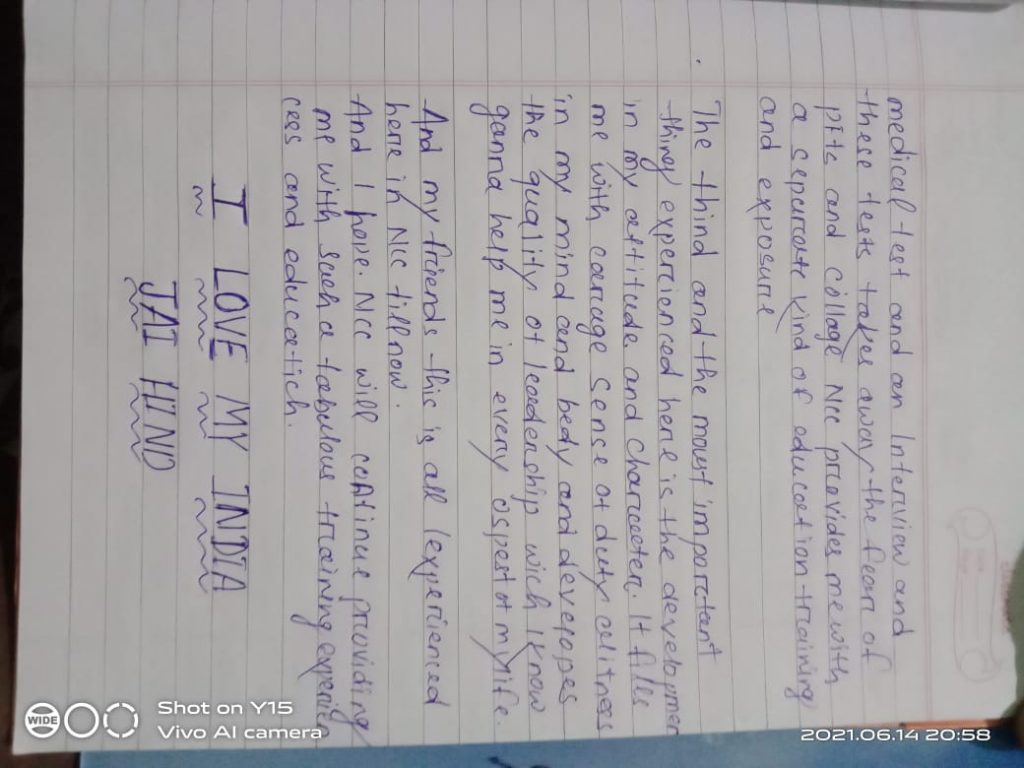 medical test and an Interview and
these tests takes away the fear of
pits and collage Ncc provides me with
a separate kind of education training
and exposure
The third and the most important
thing experienced here is the developmen
in my attitude and character. It files
me with carage sense of duty
in my mind and body and developes
the quality of leadership wich I know
ganna help me in every ospest of my life.
And my friends this is all I experienced
here in Ncc till now.
And I hope. Ncc will continue providing
me with such a fabulous training experien
ces and education.
I LOVE MY INDIA
JAI HIND
WIDE
Shot on Y15
Vivo AI camera
2021.06.14 20:58